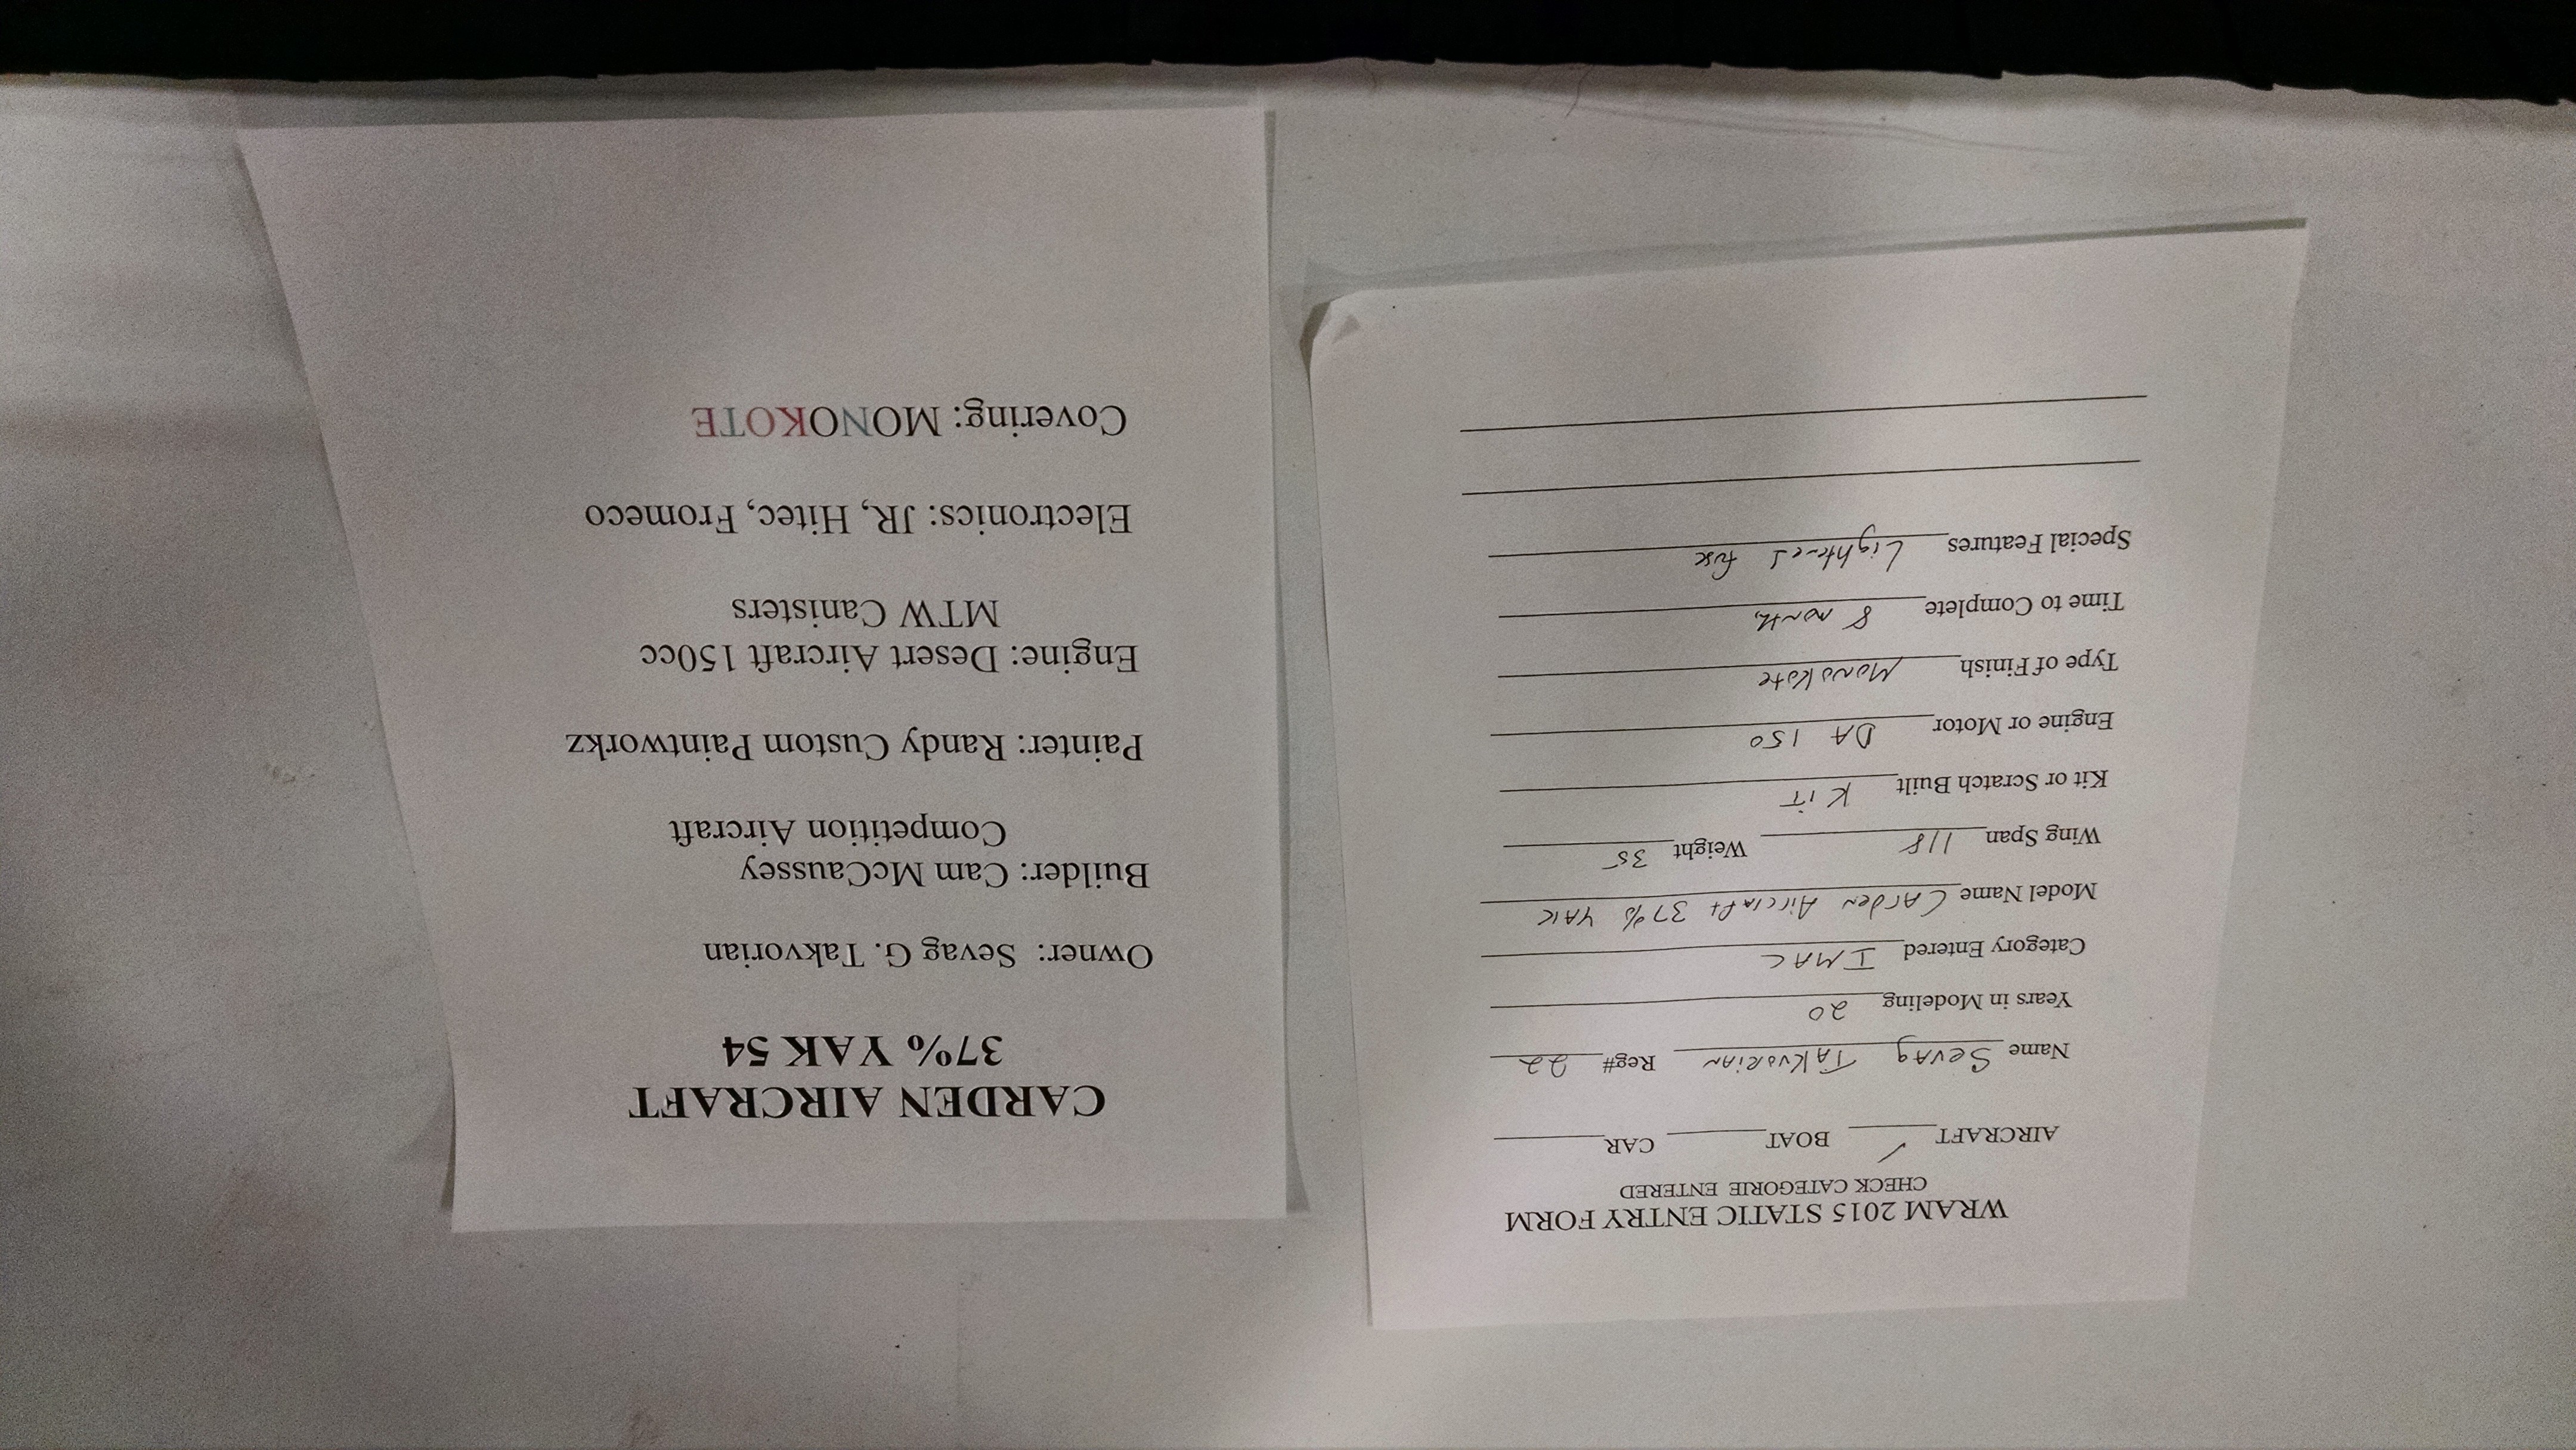 WRAM 2015 STATIC ENTRY FORM
CHECK CATEGORIE ENTERED
AIRCRAFT ✓ BOAT CAR
Name Sevag TAKVORIAN Reg# 22
Years in Modeling 20
Category Entered IMAC
Model Name CArden Aircraft 37% YAK
Wing Span 118 Weight 35
Kit or Scratch Built KiT
Engine or Motor DA 150
Type of Finish MonoKote
Time to Complete 8 months
Special Features Lightened fuse
CARDEN AIRCRAFT
37% YAK 54
Owner: Sevag G. Takvorian
Builder: Cam McCaussey
Competition Aircraft
Painter: Randy Custom Paintworkz
Engine: Desert Aircraft 150cc
MTW Canisters
Electronics: JR, Hitec, Fromeco
Covering: MONOKOTE